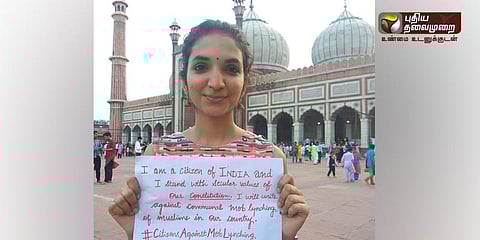 புதிய
தலைமுறை
உண்மை உடனுக்குடன்
I am a citizen of INDIA and
I stand with secular values of
our constitution. I will write
against communal mob lynching
of muslims in our country.
#CitizensAgainstMobLynching